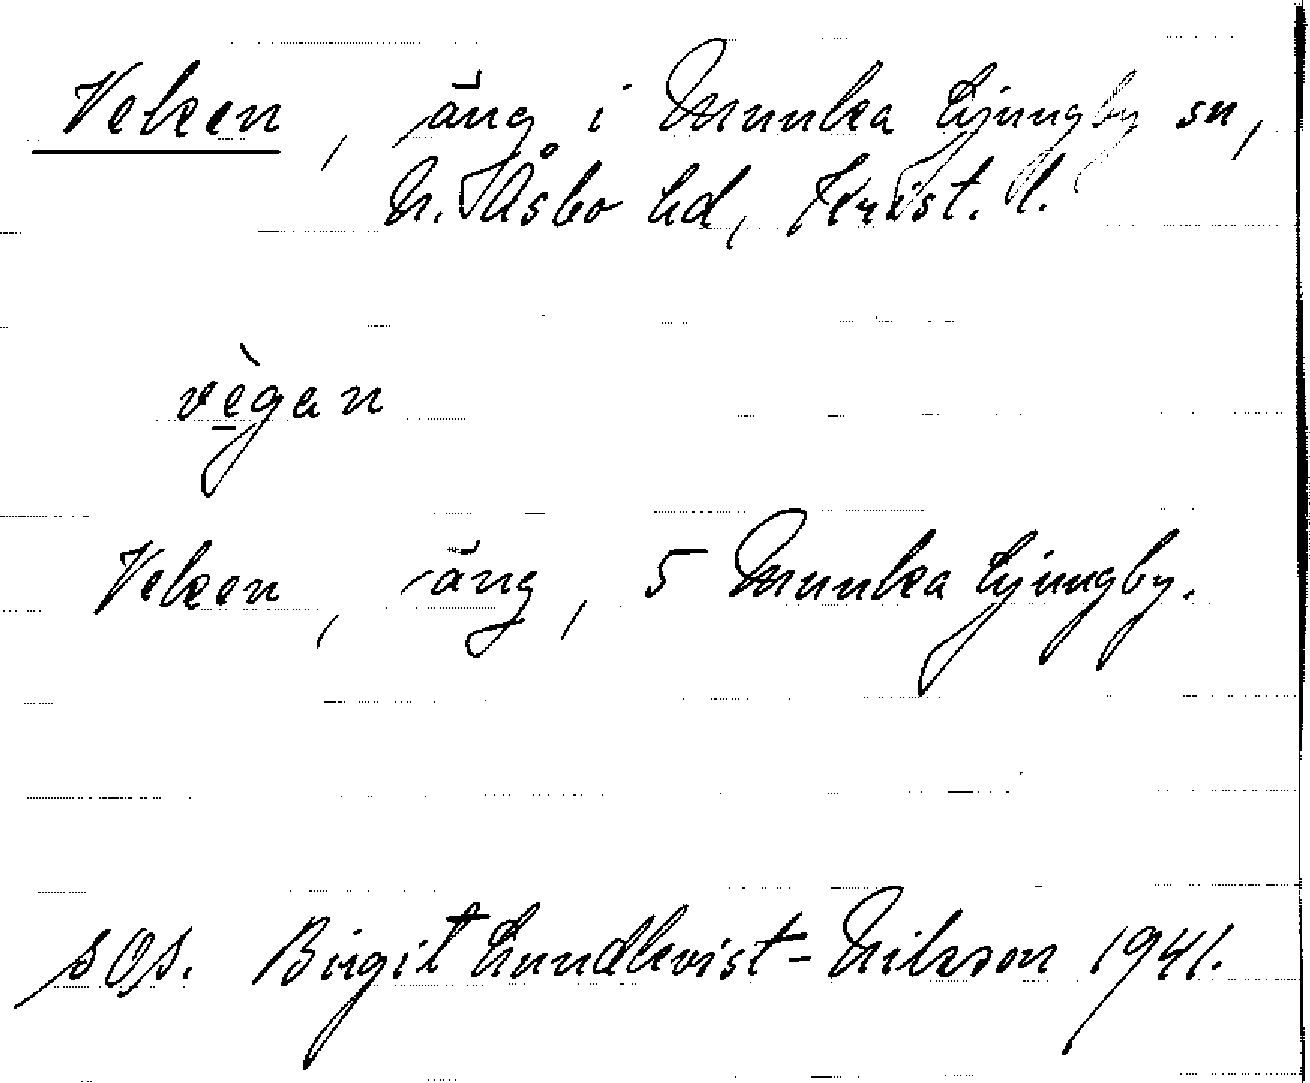 Veken, äng i Munka Ljungby sn,
N. Åsbo hd, Krist. l.
vègan
Veken, äng, 5 Munka Ljungby.
sOs. Birgit Lundkvist-Nilsson 1941.